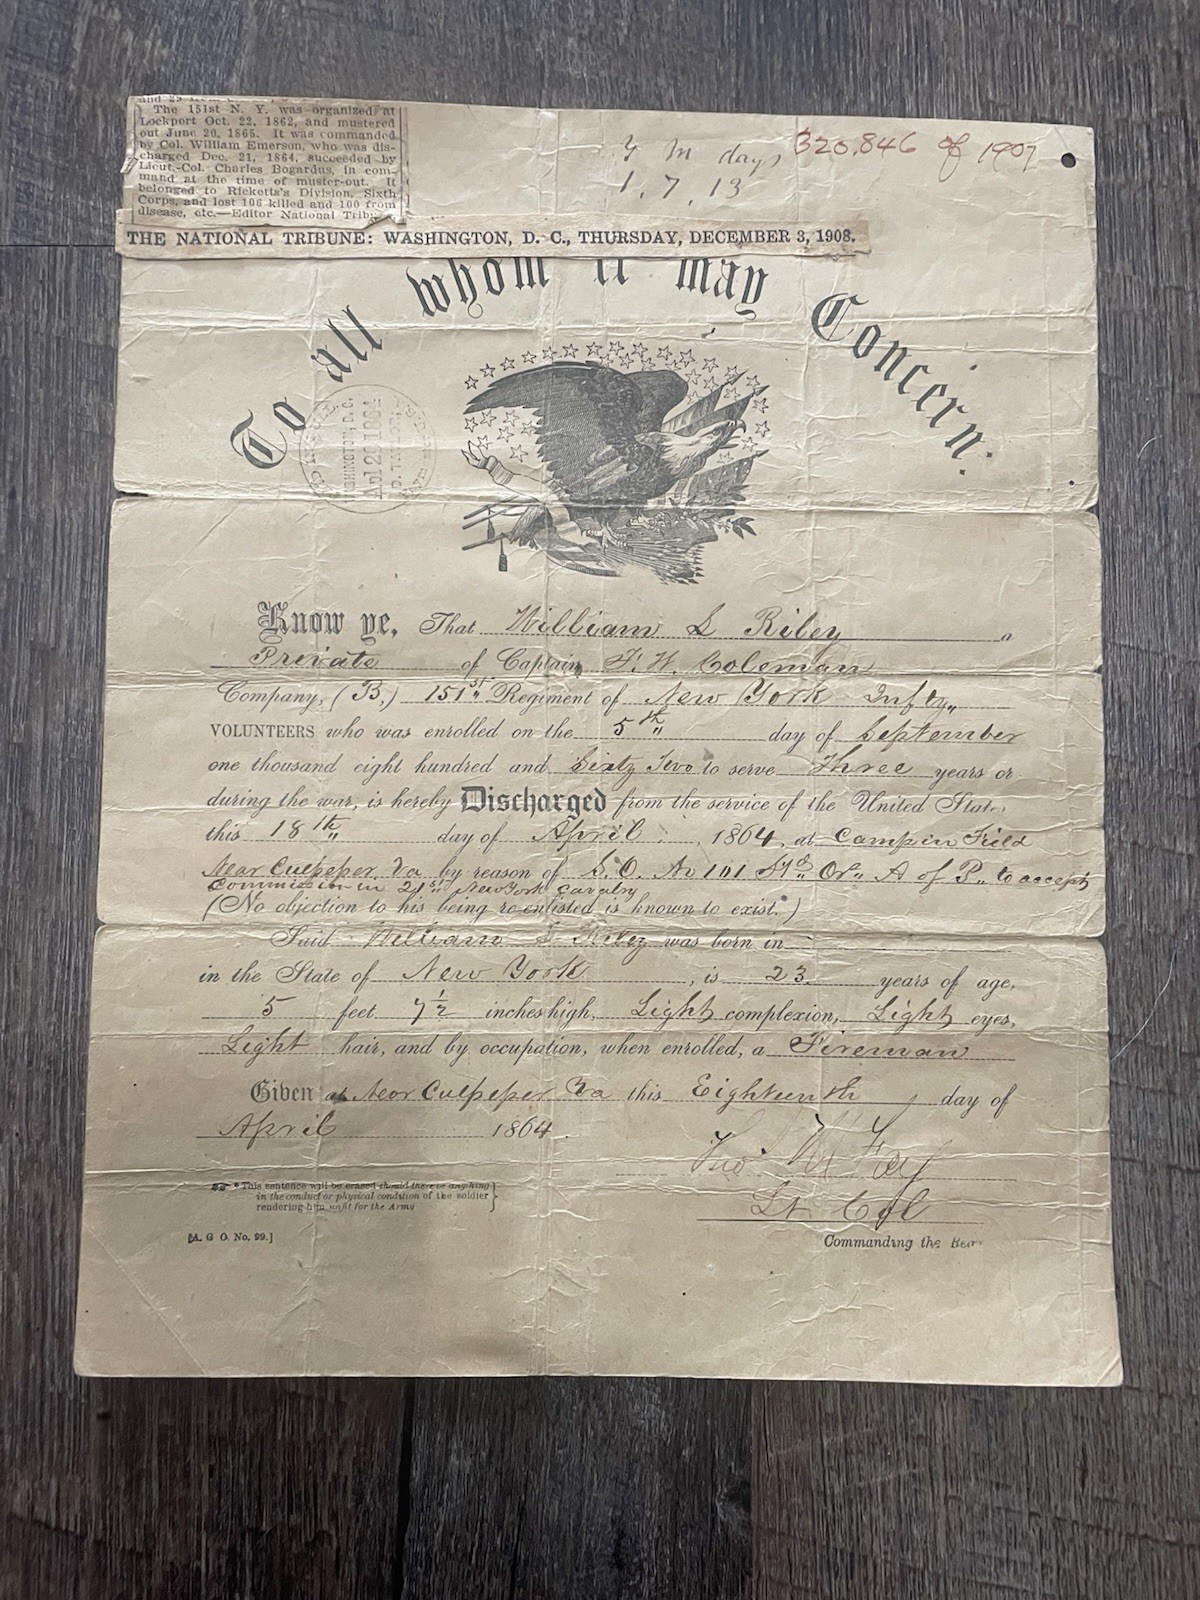 The 151st N. Y. was organized at
Lockport Oct. 22, 1862, and mustered
out June 20, 1865. It was commanded
by Col. William Emerson, who was dis-
charged Dec. 21, 1864, succeeded by
Lieut.-Col. Charles Bogardus, in com-
mand at the time of muster-out. It
belonged to Ricketts's Division, Sixth
Corps, and lost 106 killed and 100 from
disease, etc.—Editor National Tribu
Y M days
1. 7. 13
320,846 of 1907
THE NATIONAL TRIBUNE: WASHINGTON, D. C., THURSDAY, DECEMBER 3, 1908.
To all whom it may Concern:
WASHINGTON, D.C.
Apl 22 1864
Know ye, That William S Riley a
Private of Captain F. W. Coleman
Company, (B,) 151st Regiment of New York Infty
VOLUNTEERS who was enrolled on the 5th day of September
one thousand eight hundred and Sixty Two to serve Three years or
during the war, is hereby Discharged from the service of the United States,
this 18th day of April, 1864, at Camp in Field
Near Culpeper, Va by reason of S. O. No 101 Hd Qr A of P. to accept
Commission in 21st New York Cavalry
(No objection to his being re-enlisted is known to exist.*)
Said William S Riley was born in
in the State of New York, is 23 years of age,
5 feet 7½ inches high, Light complexion, Light eyes,
Light hair, and by occupation, when enrolled, a Fireman
Given at Near Culpeper Va this Eighteenth day of
April 1864.
Fay
Lt Col
*This sentence will be erased should there be anything
in the conduct or physical condition of the soldier
rendering him unfit for the Army
[A. G. O. No. 99.]
Commanding the